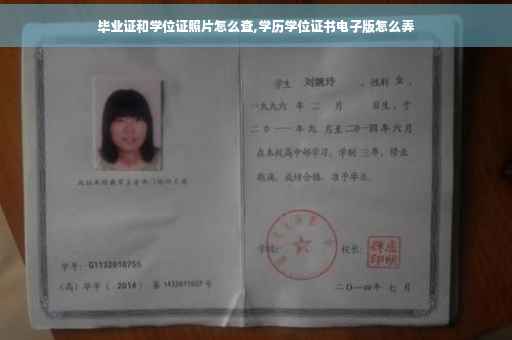 毕业证和学位证照片怎么查,学历学位证书电子版怎么弄
学生 刘婉玲 ，性别 女 ，
一九九六 年 二 月 日生，于
二〇一一 年 九 月至二〇一四 年 六 月
在本校高中部学习，学制 三 年，修业
期满，成绩合格，准予毕业。
学号：G1132010755
（高）毕字（ 2014 ）第 1432011027 号
学校：
校长：
二〇一四年 七 月